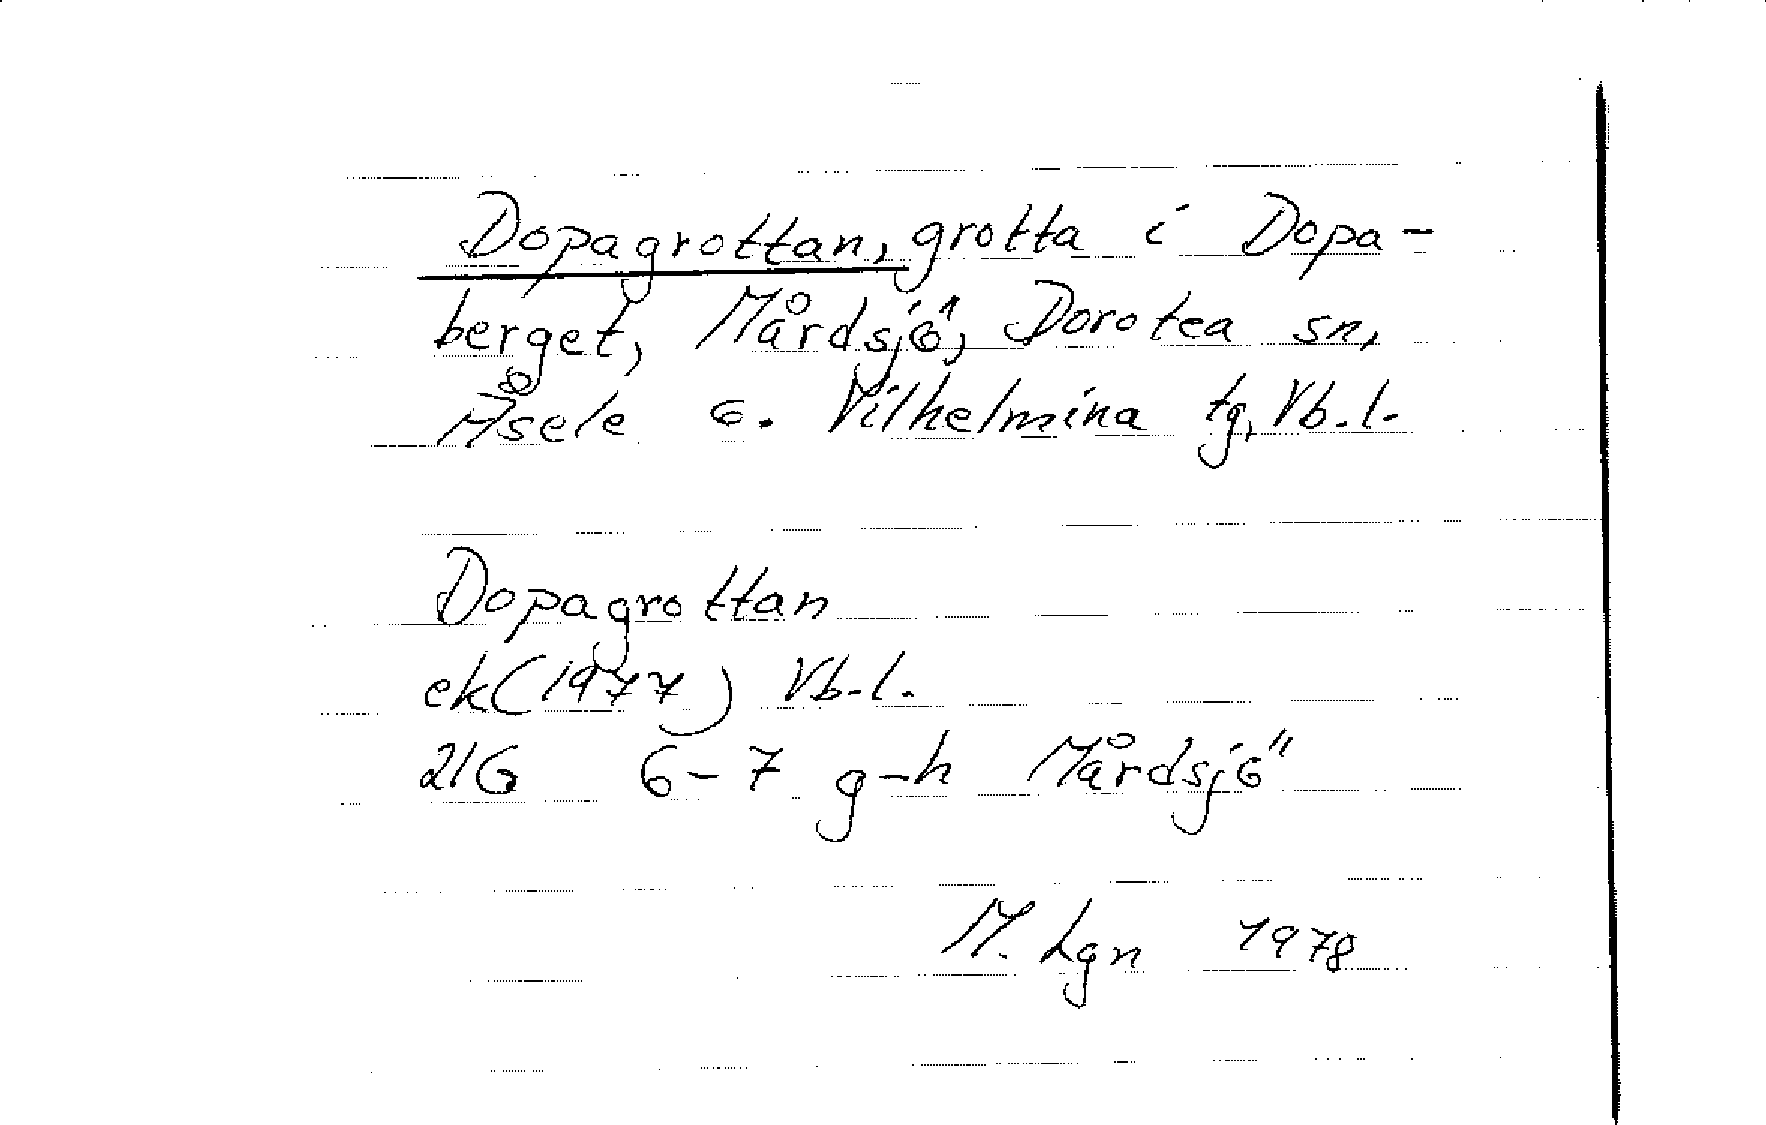 Dopagrottan, grotta i Dopa-
berget, Mårdsjö, Dorotea sn,
Åsele o. Vilhelmina tg, Vb.l.
Dopagrottan
ek (1977) Vb.l.
21G 6-7 g-h Mårdsjö
M. Lgn 1978